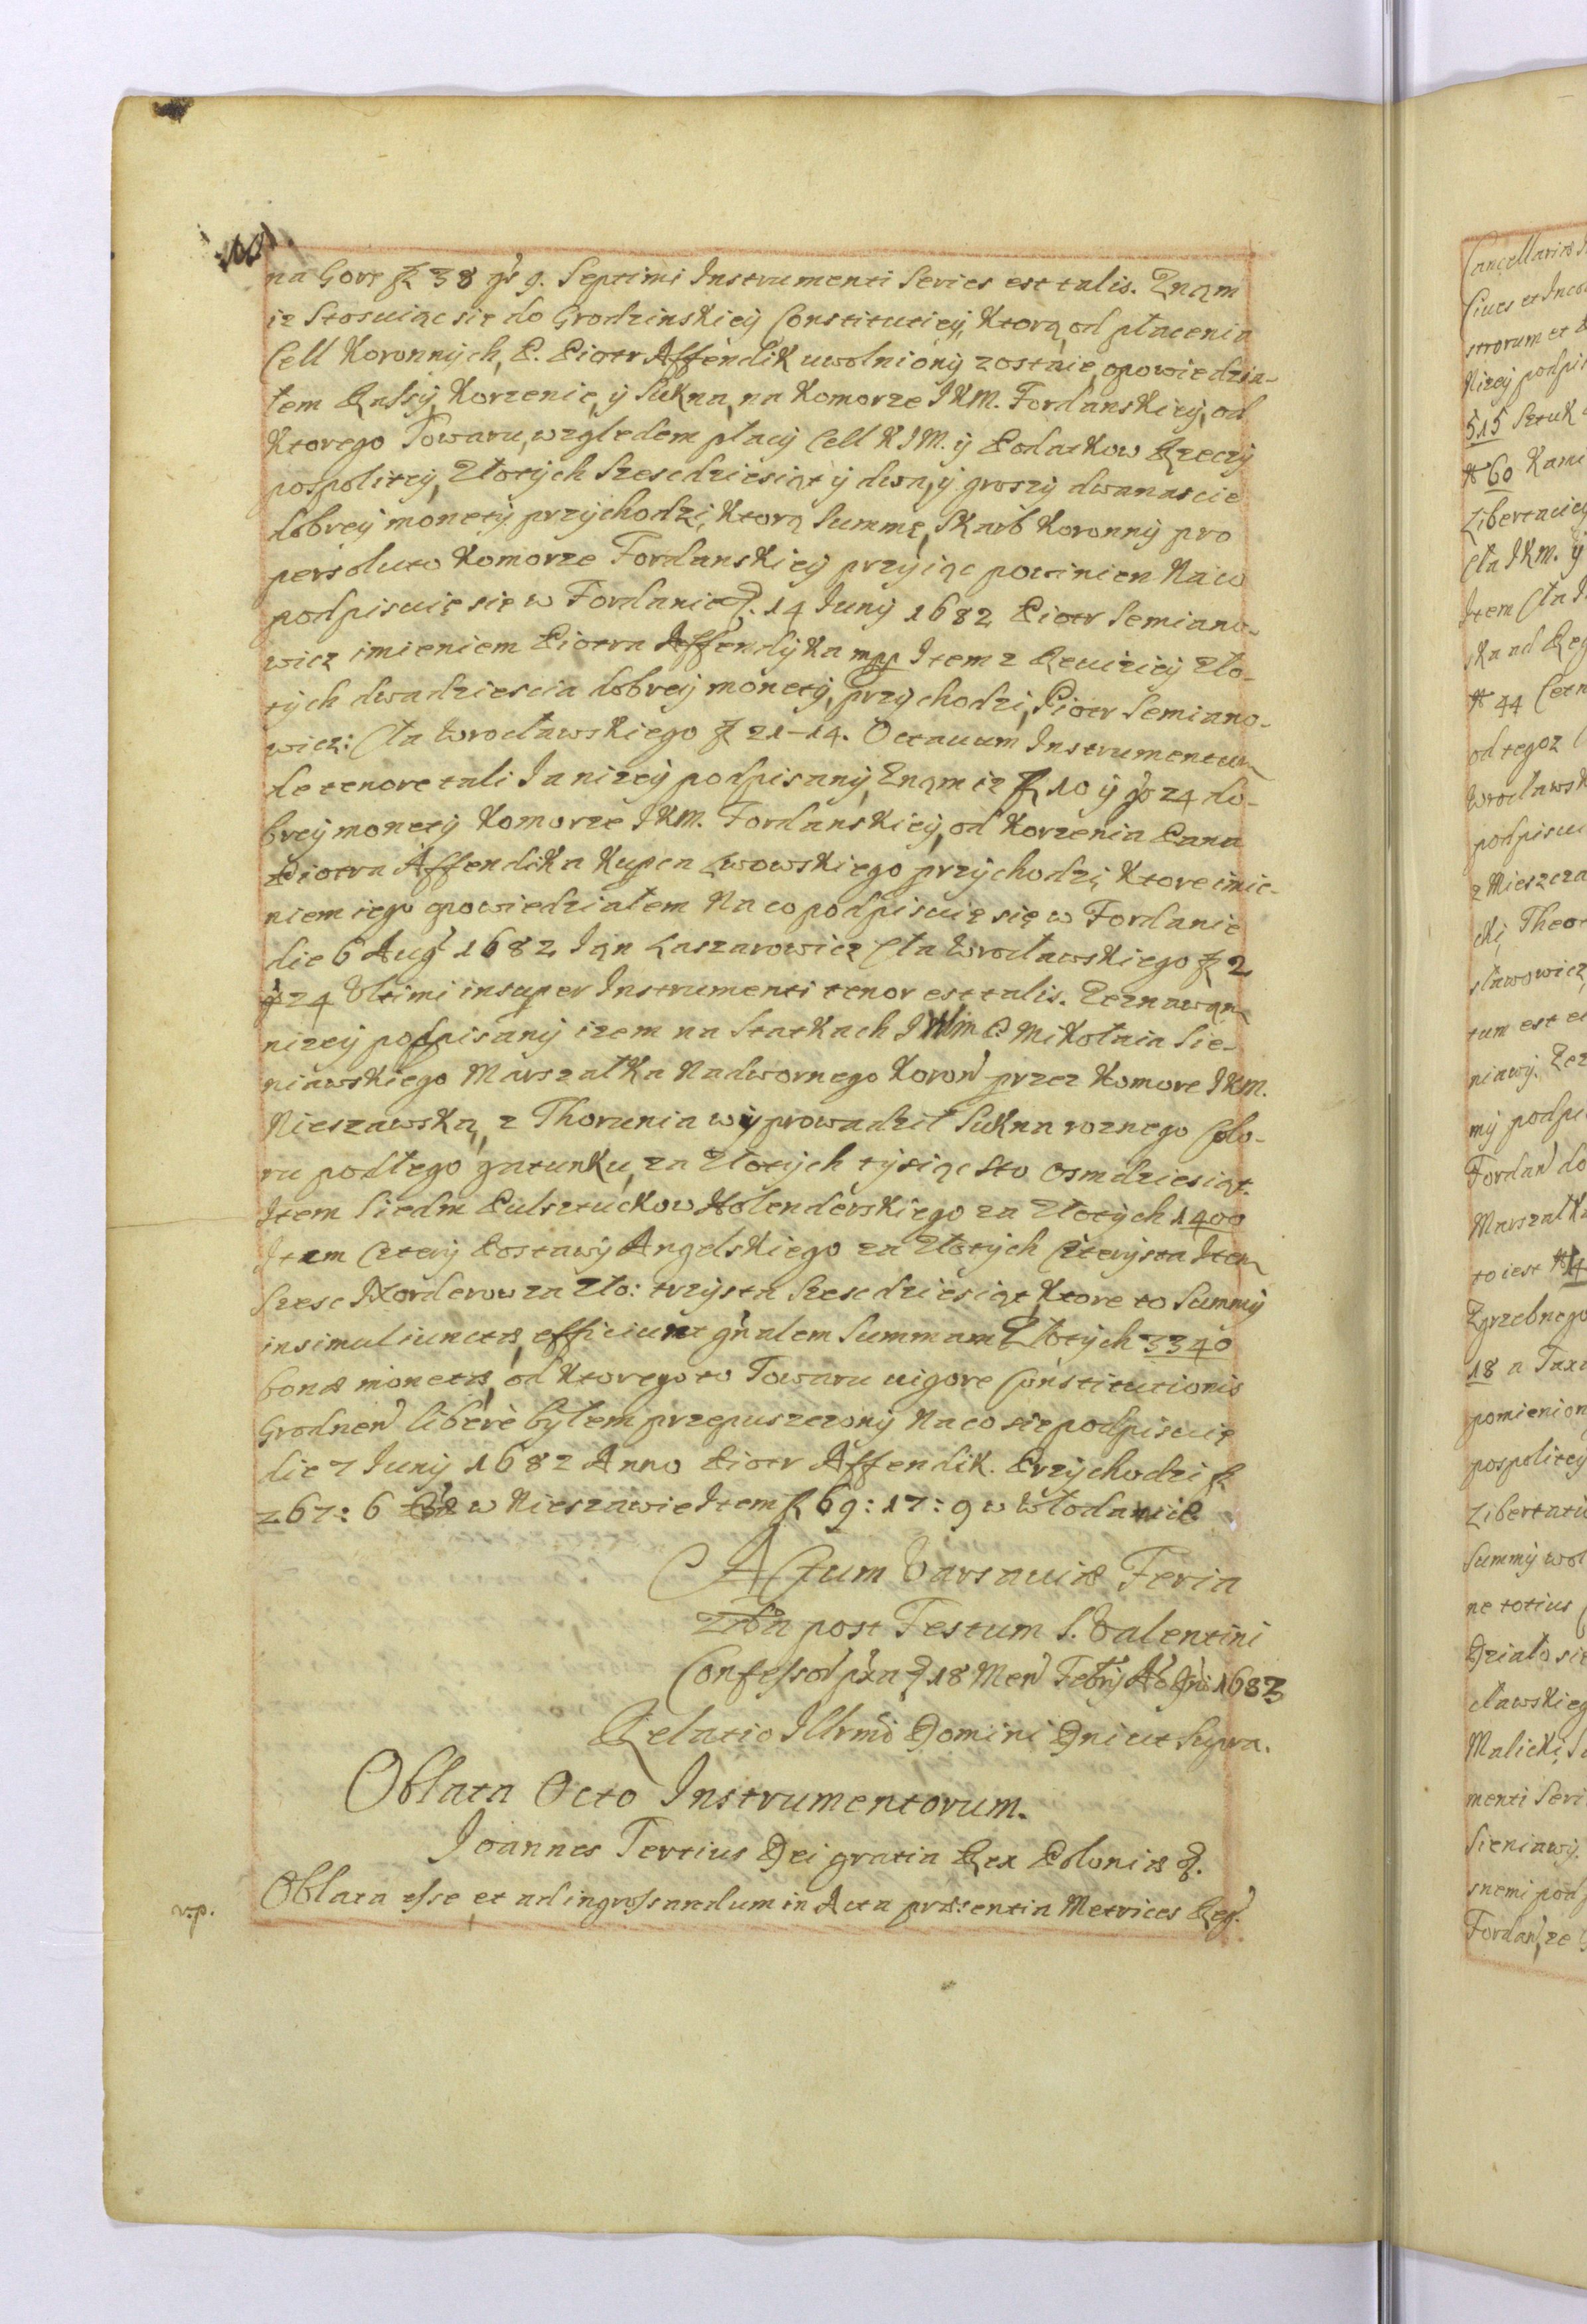 na Gore fl 38 gr 9. Septimi Instrumenti Series est talis. Znąm
iz Stosuiąc się do Grodzinskiey Constitutiey, Ktorą od płacenia
Cell Koronnych, P. Piotr Affendik uwolniony zostaie, opowiedzia-
łem Rassy, Korzenie, y Sukna, na Komorze JKM. Fordanskiey, od
Ktorego Towaru, względem płacy Cell KJM. y Podatkow Rzeczy
pospolitey, Złotych Szescdziesiąt y dwa, y groszy dwanascie
dobrey monety przychodzi, Ktorą Summę, Skarb Koronny pro
persoluto Komorze Fordanskiey przyiąc powinien Na co
podpisuię się w Fordanie d. 14 Juny 1682 Piotr Semiano-
wicz imieniem Piotra Affendyka mpp Item z Rewiziey Zło-
tych dwadziescia dobrey monety, przychodzi, Piotr Semiano-
wicz: Cła Wrocławskiego fl 21-14. Octauum Instrumentum
de tenore tali Ja nizey podpisany, Znąm iz fl 10 y gr 24 do-
brey monety Komorze JKM. Fordanskiey, od Korzenia Pana
Piotra Affendika Kupca Lwowskiego przychodzi, Ktore imie-
niem iego opowiedziałem Na co podpisuię się w Fordanie
die 6 Aug 1682 Jan Laszarowicz Cła Wrocławskiego fl 2
gr 24 Vltimi insuper Instrumenti tenor est talis. Zeznawąm
nizey podpisany izem na Statkach J Wm P. Mikołaia Sie-
niawskiego Marszałka Nadwornego Koron przez Komorę JKM.
Nieszawską, z Thorunia wyprowadził Sukna roznego Colo-
ru podłego gatunku, za Złotych tysiąc sto osmdziesiąt.
Item Siedm Pulsztuckow Holenderskiego za Złotych 1400
Item Cztery Postawy Angelskiego za Złotych Czterysta Item
Szesc Morderow za Zło: trzysta Szescdziesiąt, Ktore to Summy
insimul iunctæ, efficiunt gnalem Summam Złotych 3340
bonæ monetæ, od Ktorego to Towaru uigore Constitutionis
Grodnen liberè byłem przepuszczony Na co się podpisuię
die 7 Juny 1682 Anno Piotr Affendik. Przychodzi fl
267: 6 w Nieszawie Item fl 69: 17: 9 w Włodawie
Actum Varsauiæ Feria
post Festum S. Valentini
Confessor pxa d 18 Men Febry Ao Dni 1683
Relatio Illrmi Domini Dni ut Supra.
Oblata Octo Instrumentorum.
Joannes Tertius Dei gratia Rex Poloniæ &.
v.p.
Oblata esse, et ad ingrossandum in Acta præsentia Metrices Reg.
Fordan, ze